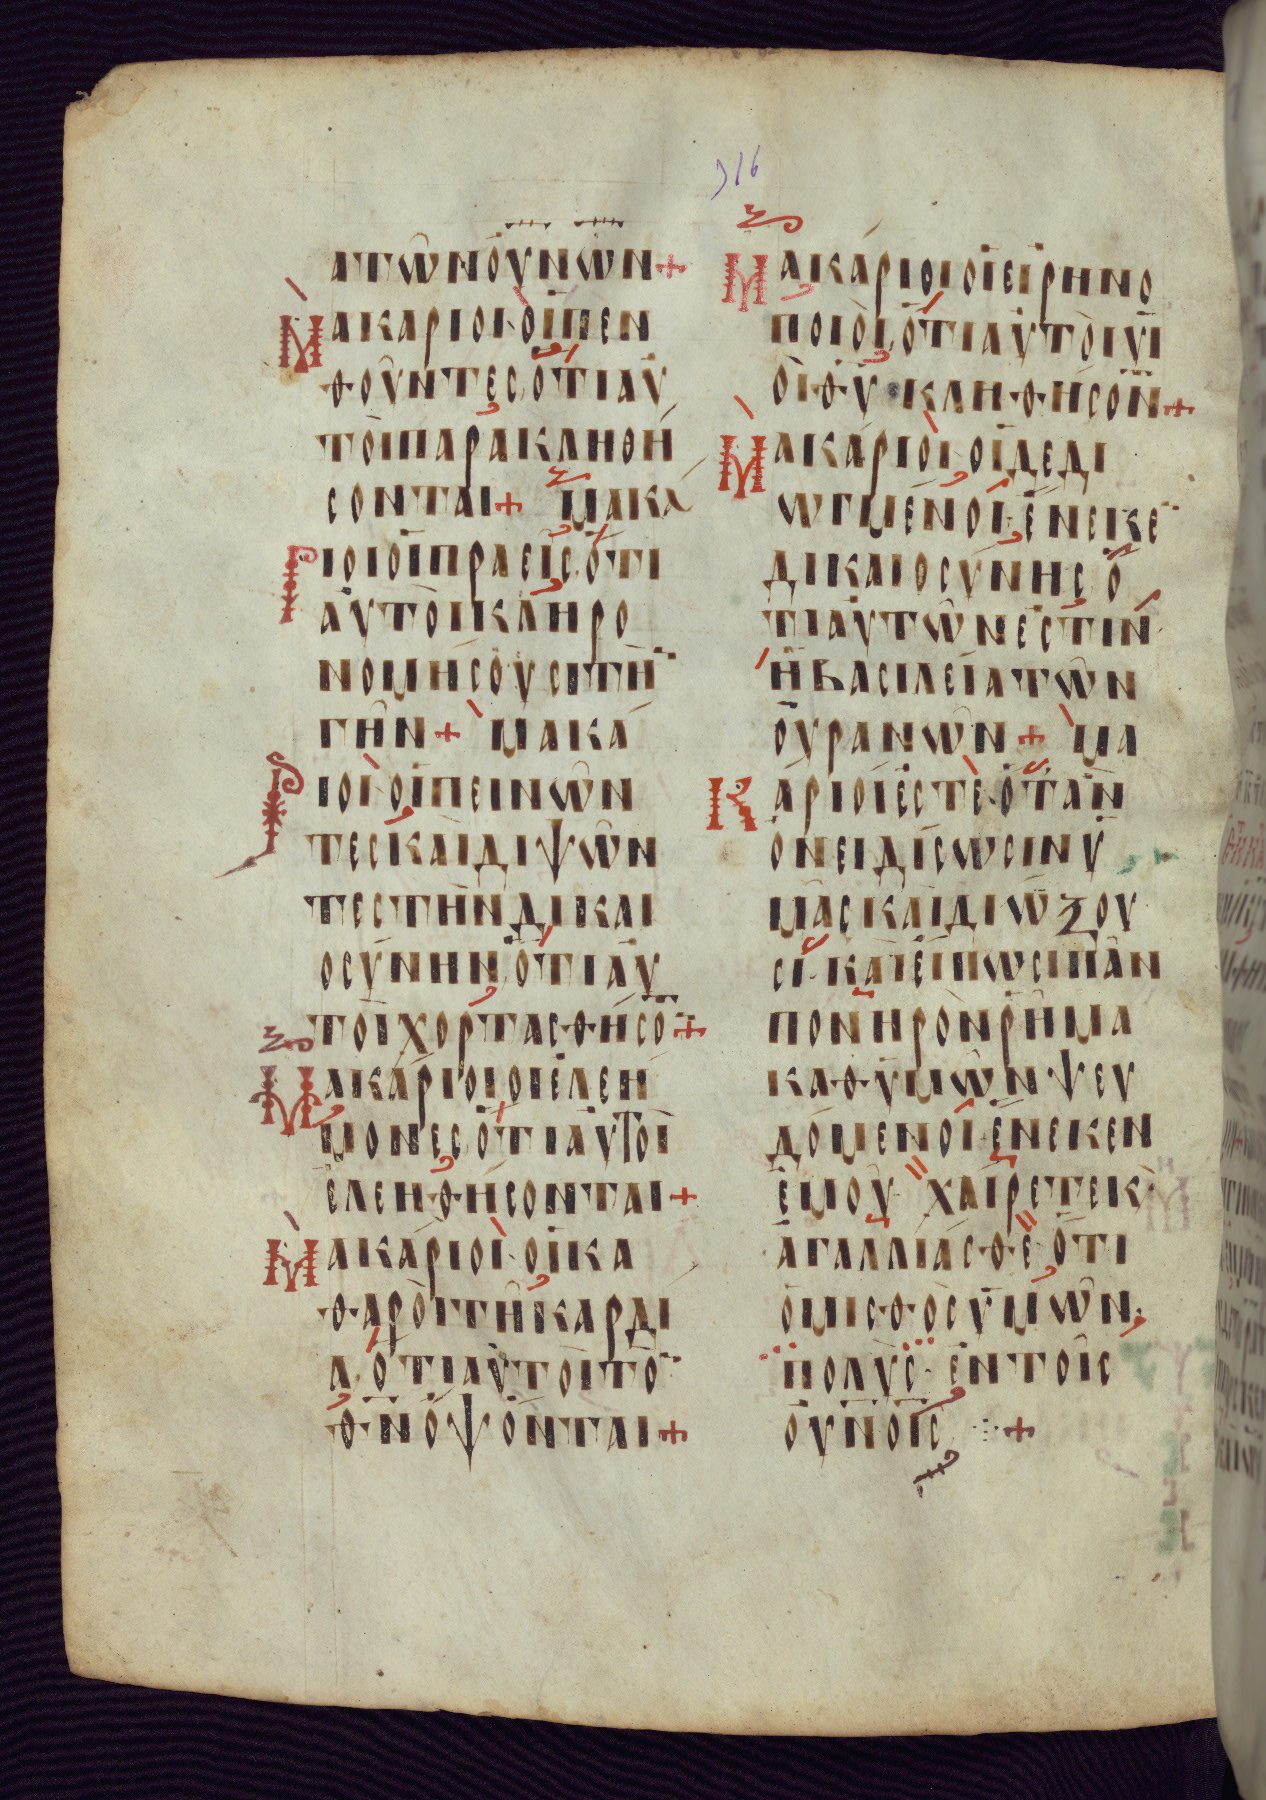 316
ατῶνοὐνῶν+
Μακάριοι·οἱπεν
θοῦντες·ὅτιαὐ
τοὶπαρακληθή
σονται+ μακά
ριοιοἱπραεῖς·ὅτι
αὐτοὶκληρο
νομήσουσιτὴ
γῆν+ μακά
ριοι·οἱπεινῶν
τεςκαὶδιψῶν
τεςτὴνδικαι
οσύνην·ὅτιαὐ
τοὶχορτασθήσο+
Μακάριοιοἱελεή
μονεςὅτιαὐτοὶ
ἐλεηθήσονται+
Μακάριοι·οἱκα
θαροὶτῆκαρδί
α·ὅτιαὐτοὶτὸ
θνὄψονται+
Μακάριοιοἱεἰρηνο
ποιοὶ·ὅτιαὐτοὶυἱ
οὶθυκληθήσον+
Μακάριοι·οἱδεδι
ωγμένοι·ἕνεκε
δικαιοσύνης·ὅ
τιαὐτῶνἐστιν·
ἡβασιλείατῶν
οὐρανῶν+ μα
κάριοίἐστε·ὅταν
ὀνειδίσωσινὑ
μᾶςκαὶδιώξου
σι·καὶεἴπωσιπᾶν
πονηρὸνρῆμα
καθυμῶνψευ
δόμενοι·ἕνεκεν
ἐμοῦ· χαίρετεκ
ἀγαλλιᾶσθε·ὅτι
ὁμισθοςυμῶν·
πολὺς·ἐντοῖς
οὐνοῖς +